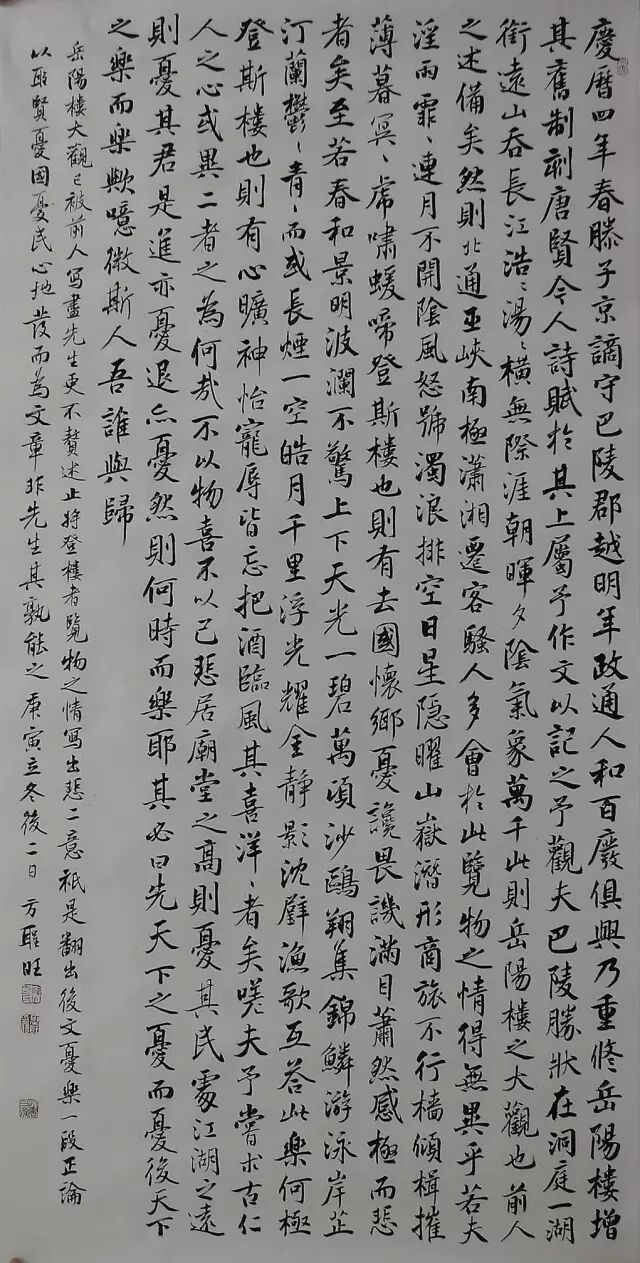 慶曆四年春滕子京謫守巴陵郡越明年政通人和百廢俱興乃重修岳陽樓增
其舊制刻唐賢今人詩賦於其上屬予作文以記之予觀夫巴陵勝狀在洞庭一湖
銜遠山吞長江浩〻湯〻橫無際涯朝暉夕陰氣象萬千此則岳陽樓之大觀也前人
之述備矣然則北通巫峽南極瀟湘遷客騷人多會於此覽物之情得無異乎若夫
淫雨霏〻連月不開陰風怒號濁浪排空日星隱曜山嶽潛形商旅不行檣傾楫摧
薄暮冥〻虎嘯猿啼登斯樓也則有去國懷鄉憂讒畏譏滿目蕭然感極而悲
者矣至若春和景明波瀾不驚上下天光一碧萬頃沙鷗翔集錦鱗游泳岸芷
汀蘭鬱〻青而或長煙一空皓月千里浮光耀金靜影沈璧漁歌互答此樂何極
登斯樓也則有心曠神怡寵辱皆忘把酒臨風其喜洋〻者矣嗟夫予嘗求古仁
人之心或異二者之為何哉不以物喜不以己悲居廟堂之高則憂其民處江湖之遠
則憂其君是進亦憂退亦憂然則何時而樂耶其必曰先天下之憂而憂後天下
之樂而樂歟噫微斯人吾誰與歸
岳陽樓大觀已被前人寫盡先生更不贅述止將登樓者覽物之情寫出悲二意祇是翻出後文憂樂一段正論
以聖賢憂國憂民心地發而為文章非先生其孰能之庚寅立冬後二日方旺